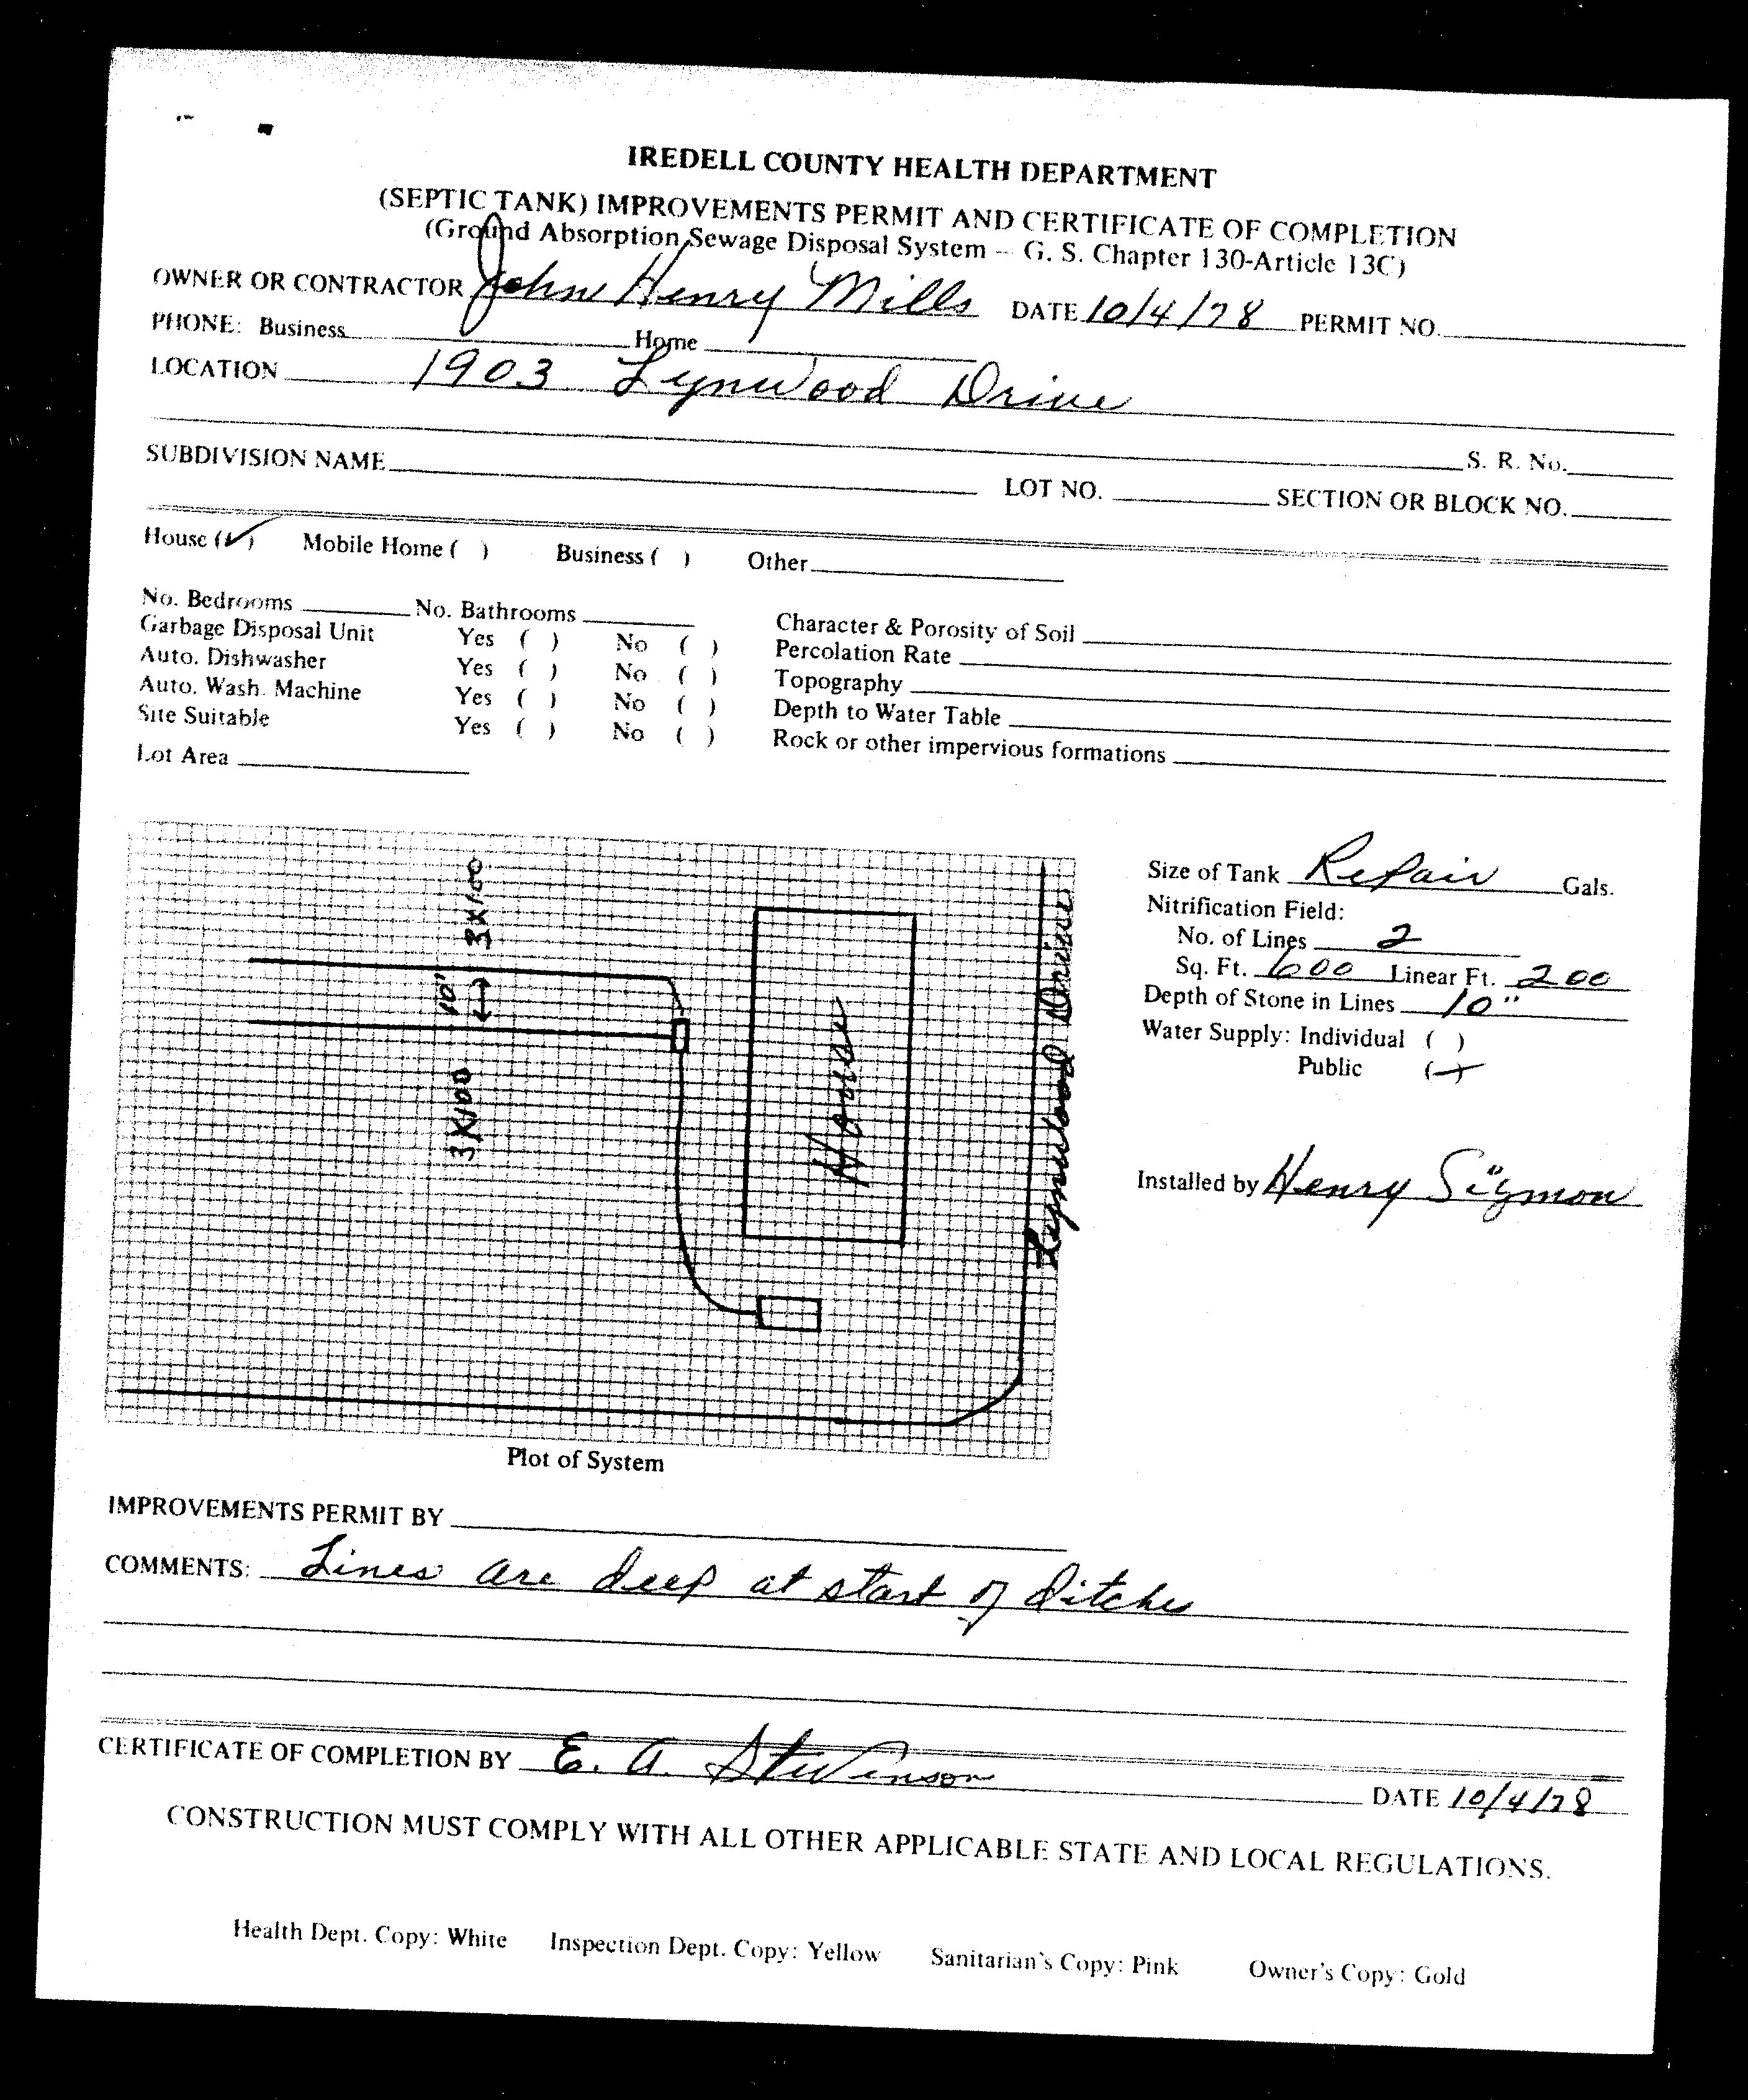 IREDELL COUNTY HEALTH DEPARTMENT
(SEPTIC TANK) IMPROVEMENTS PERMIT AND CERTIFICATE OF COMPLETION
(Ground Absorption Sewage Disposal System -- G. S. Chapter 130-Article 13C)
OWNER OR CONTRACTOR John Henry Mills DATE 10/4/78 PERMIT NO.
PHONE: Business Home
LOCATION 1903 Lynwood Drive
S. R. No.
SUBDIVISION NAME LOT NO. SECTION OR BLOCK NO.
House (✓) Mobile Home ( ) Business ( ) Other
No. Bedrooms No. Bathrooms
Garbage Disposal Unit Yes ( ) No ( )
Auto. Dishwasher Yes ( ) No ( )
Auto. Wash. Machine Yes ( ) No ( )
Site Suitable Yes ( ) No ( )
Lot Area
Character & Porosity of Soil
Percolation Rate
Topography
Depth to Water Table
Rock or other impervious formations
3X100
10"
3X100
House
Lynwood Drive
Plot of System
Size of Tank Repair Gals.
Nitrification Field:
No. of Lines 2
Sq. Ft. 600 Linear Ft. 200
Depth of Stone in Lines 10"
Water Supply: Individual ( )
Public (+)
Installed by Henry Sigmon
IMPROVEMENTS PERMIT BY
COMMENTS: Lines are deep at start of ditches
CERTIFICATE OF COMPLETION BY E. A. Stevenson
DATE 10/4/78
CONSTRUCTION MUST COMPLY WITH ALL OTHER APPLICABLE STATE AND LOCAL REGULATIONS.
Health Dept. Copy: White Inspection Dept. Copy: Yellow Sanitarian's Copy: Pink Owner's Copy: Gold